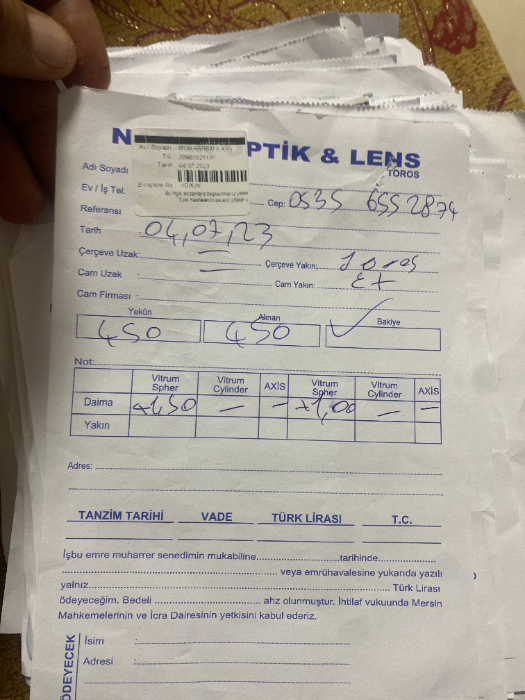 N PTİK & LENS
TOROS
Adı Soyadı
Adı Soyadı
Tarih 04.07.2023
Ev / İş Tel. Cep: 0535 655 2874
Referansı
Tarih 04,07,23
Çerçeve Uzak: Çerçeve Yakın: Toros
Cam Uzak : Cam Yakın:
Cam Firması :
Yekün Alınan Bakiye
450 450
Not:
Vitrum Spher Vitrum Cylinder AXİS Vitrum Spher Vitrum Cylinder AXİS
Daima +1,50 — — +1,00 — —
Yakın
Adres:
TANZİM TARİHİ VADE TÜRK LİRASI T.C.
İşbu emre muharrer senedimin mukabiline tarihinde
veya emrühavalesine yukarıda yazılı
yalnız Türk Lirası
ödeyeceğim. Bedeli ahz olunmuştur. İhtilaf vukuunda Mersin
Mahkemelerinin ve İcra Dairesinin yetkisini kabul ederiz.
ÖDEYECEK
İsim :
Adresi :